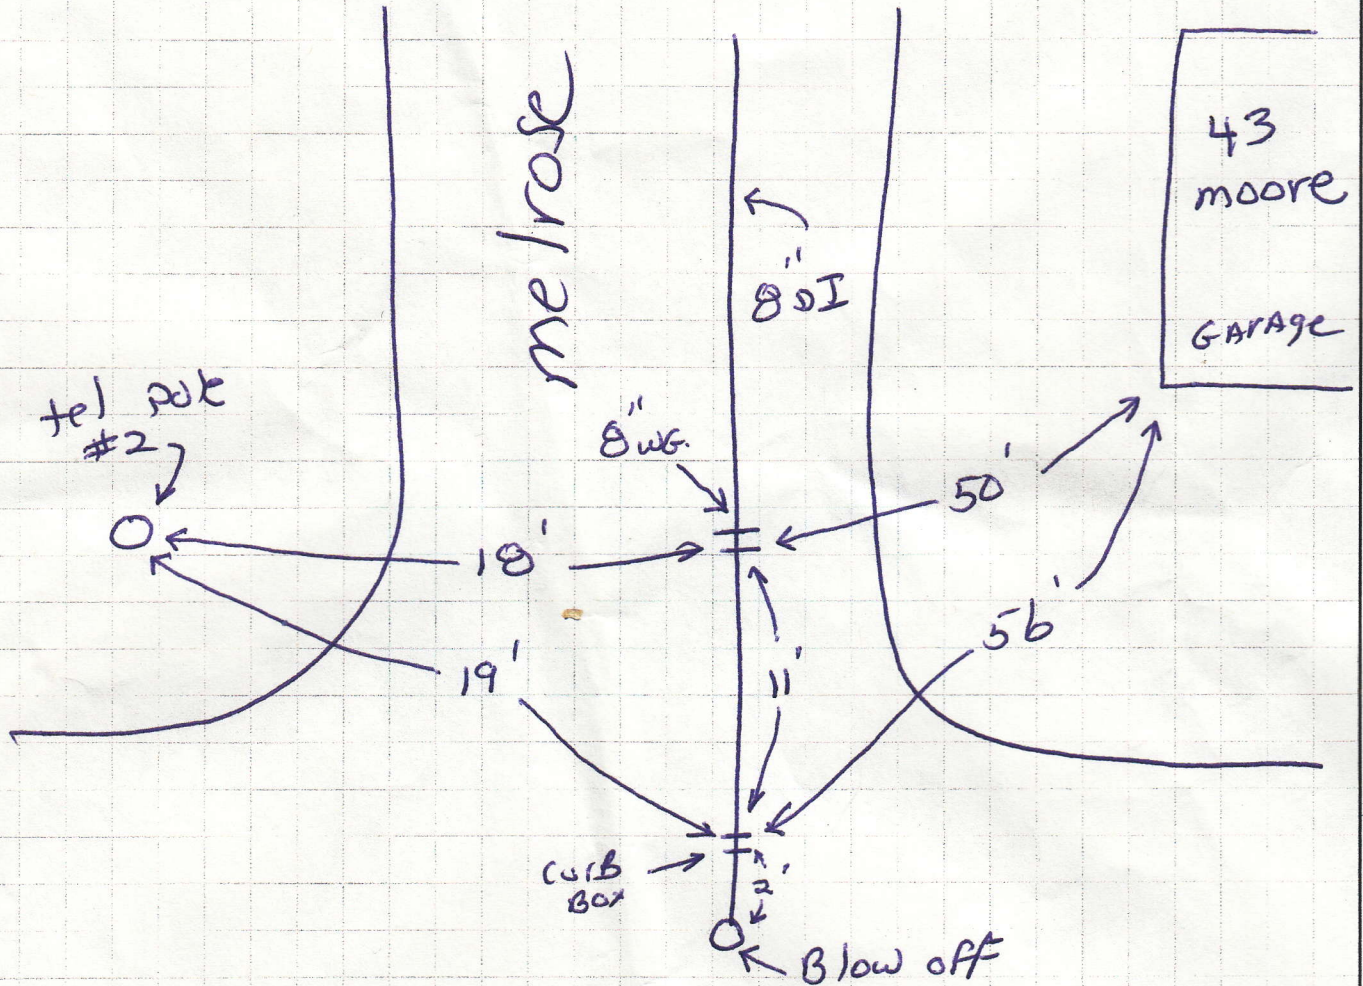 melrose
43
moore
GArAge
8" DI
tel pole
#2
8" WG.
50'
18'
56'
19'
11'
CurB
Box
2'
Blow off